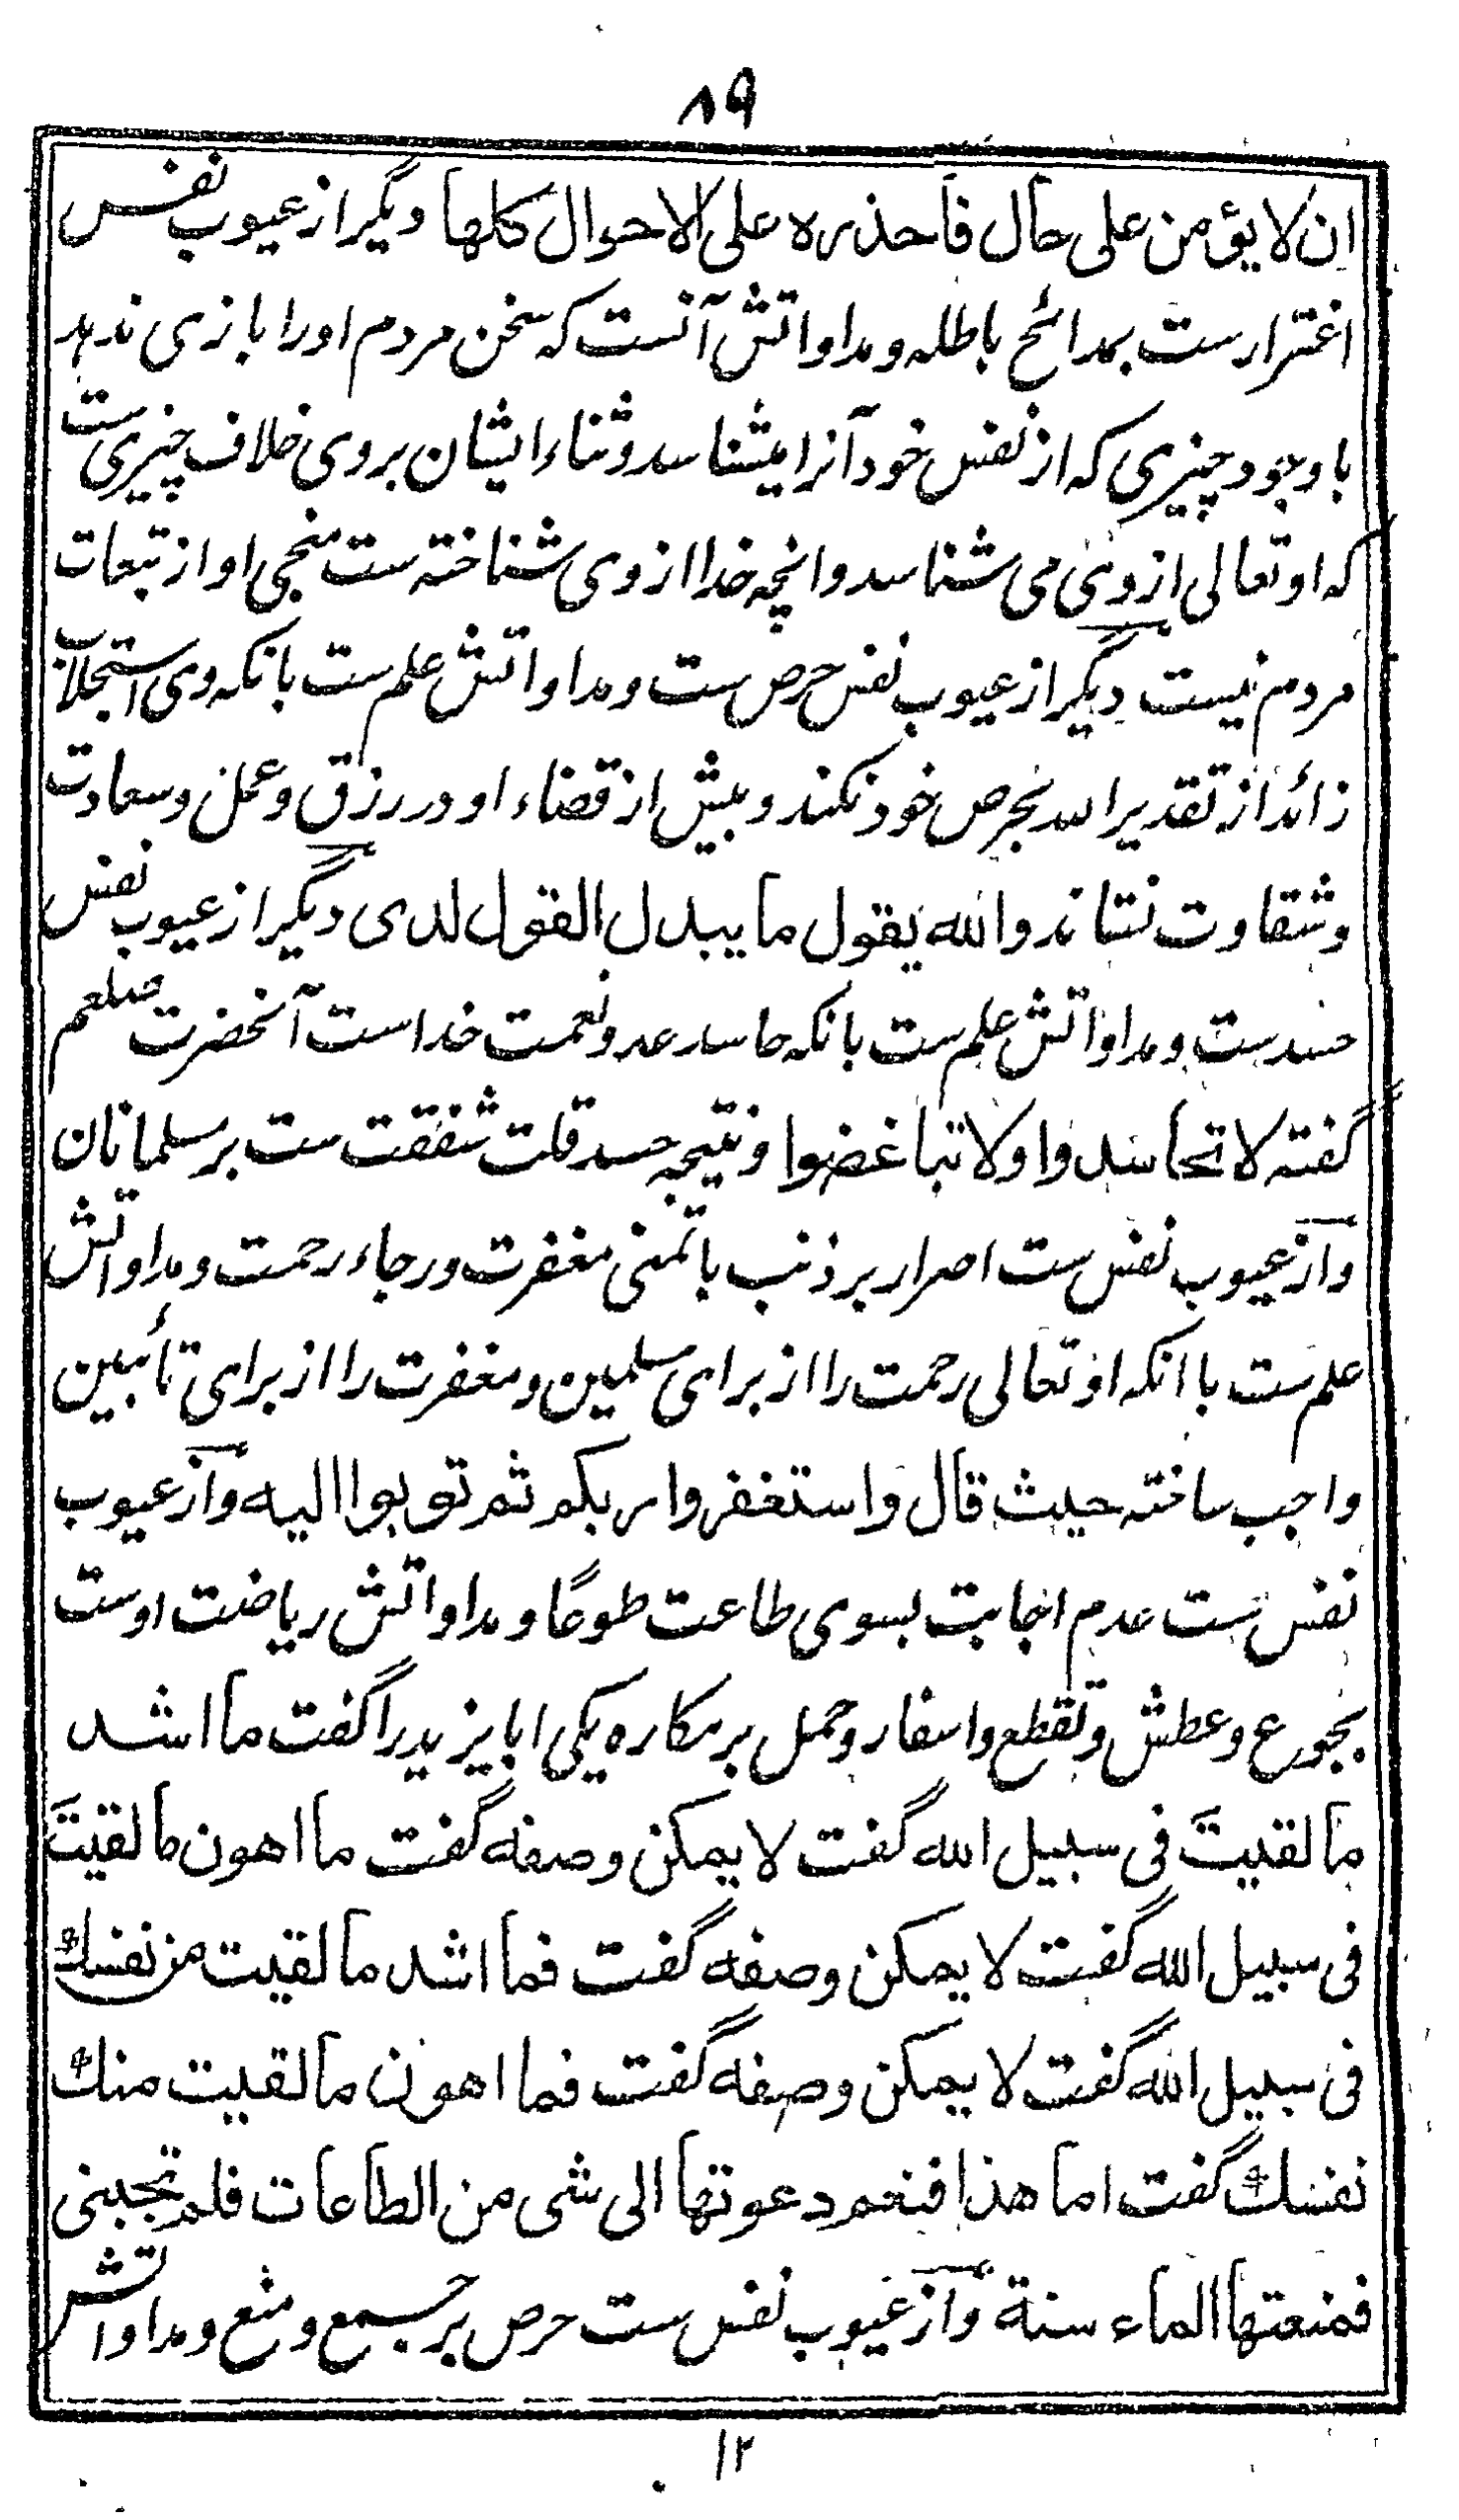 ۸۹
ان لا یؤمن علی حال فاحذره علی الاحوال کلها دیگر از عیوب نفس
اغترارست بمدائح باطله و مداواتش آنست که سخن مردم او را بازی ندهد
باوجود چیزی که از نفس خود آنرا میشناسد و ثناء ایشان بروی خلاف چیزیست
که او تعالی ازوی می شناسد وانچه خدا ازوی شناخته ست منجی او از تبعات
مردم نیست دیگر از عیوب نفس حرص ست و مداواتش علم ست بانکه وی استجلاب
زائد از تقدیر الله بحرص خود نکند و بیش از قضاء او در رزق و عمل و سعادت
و شقاوت نتاند والله یقول ما یبدل القول لدی دیگر از عیوب نفس
حسدست و مداواتش علم ست بانکه حاسد عدو نعمت خداست آنحضرت صلعم
گفته لا تحاسدوا ولا تباغضوا و نتیجه حسد قلت شفقت ست بر مسلمانان
واز عیوب نفس ست اصرار بر ذنب با تمنی مغفرت و رجاء رحمت و مداواتش
علم ست با انکه او تعالی رحمت را از برای مسلمین و مغفرت را از برای تأئبین
واجب ساخته حیث قال واستغفروا ربکم ثم توبوا الیه واز عیوب
نفس ست عدم اجابت بسوی طاعت طوعًا و مداواتش ریاضت اوست
بجوع و عطش و تقطع واسفار و حمل بر مکاره یکی ابایزید را گفت ما اشد
ما لقیتَ فی سبیل الله گفت لا یمکن وصفه گفت ما اهون ما لقیتَ
فی سبیل الله گفت لا یمکن وصفه گفت فما اشد ما لقیت من نفسك
فی سبیل الله گفت لا یمکن وصفه گفت فما اهون ما لقیت منك
نفسك گفت اما هذا فنعم دعوتها الی شی من الطاعات فلم تجبنی
فمنعتها الماء سنة واز عیوب نفس ست حرص بر جمع و منع و مداواتش
۱۲